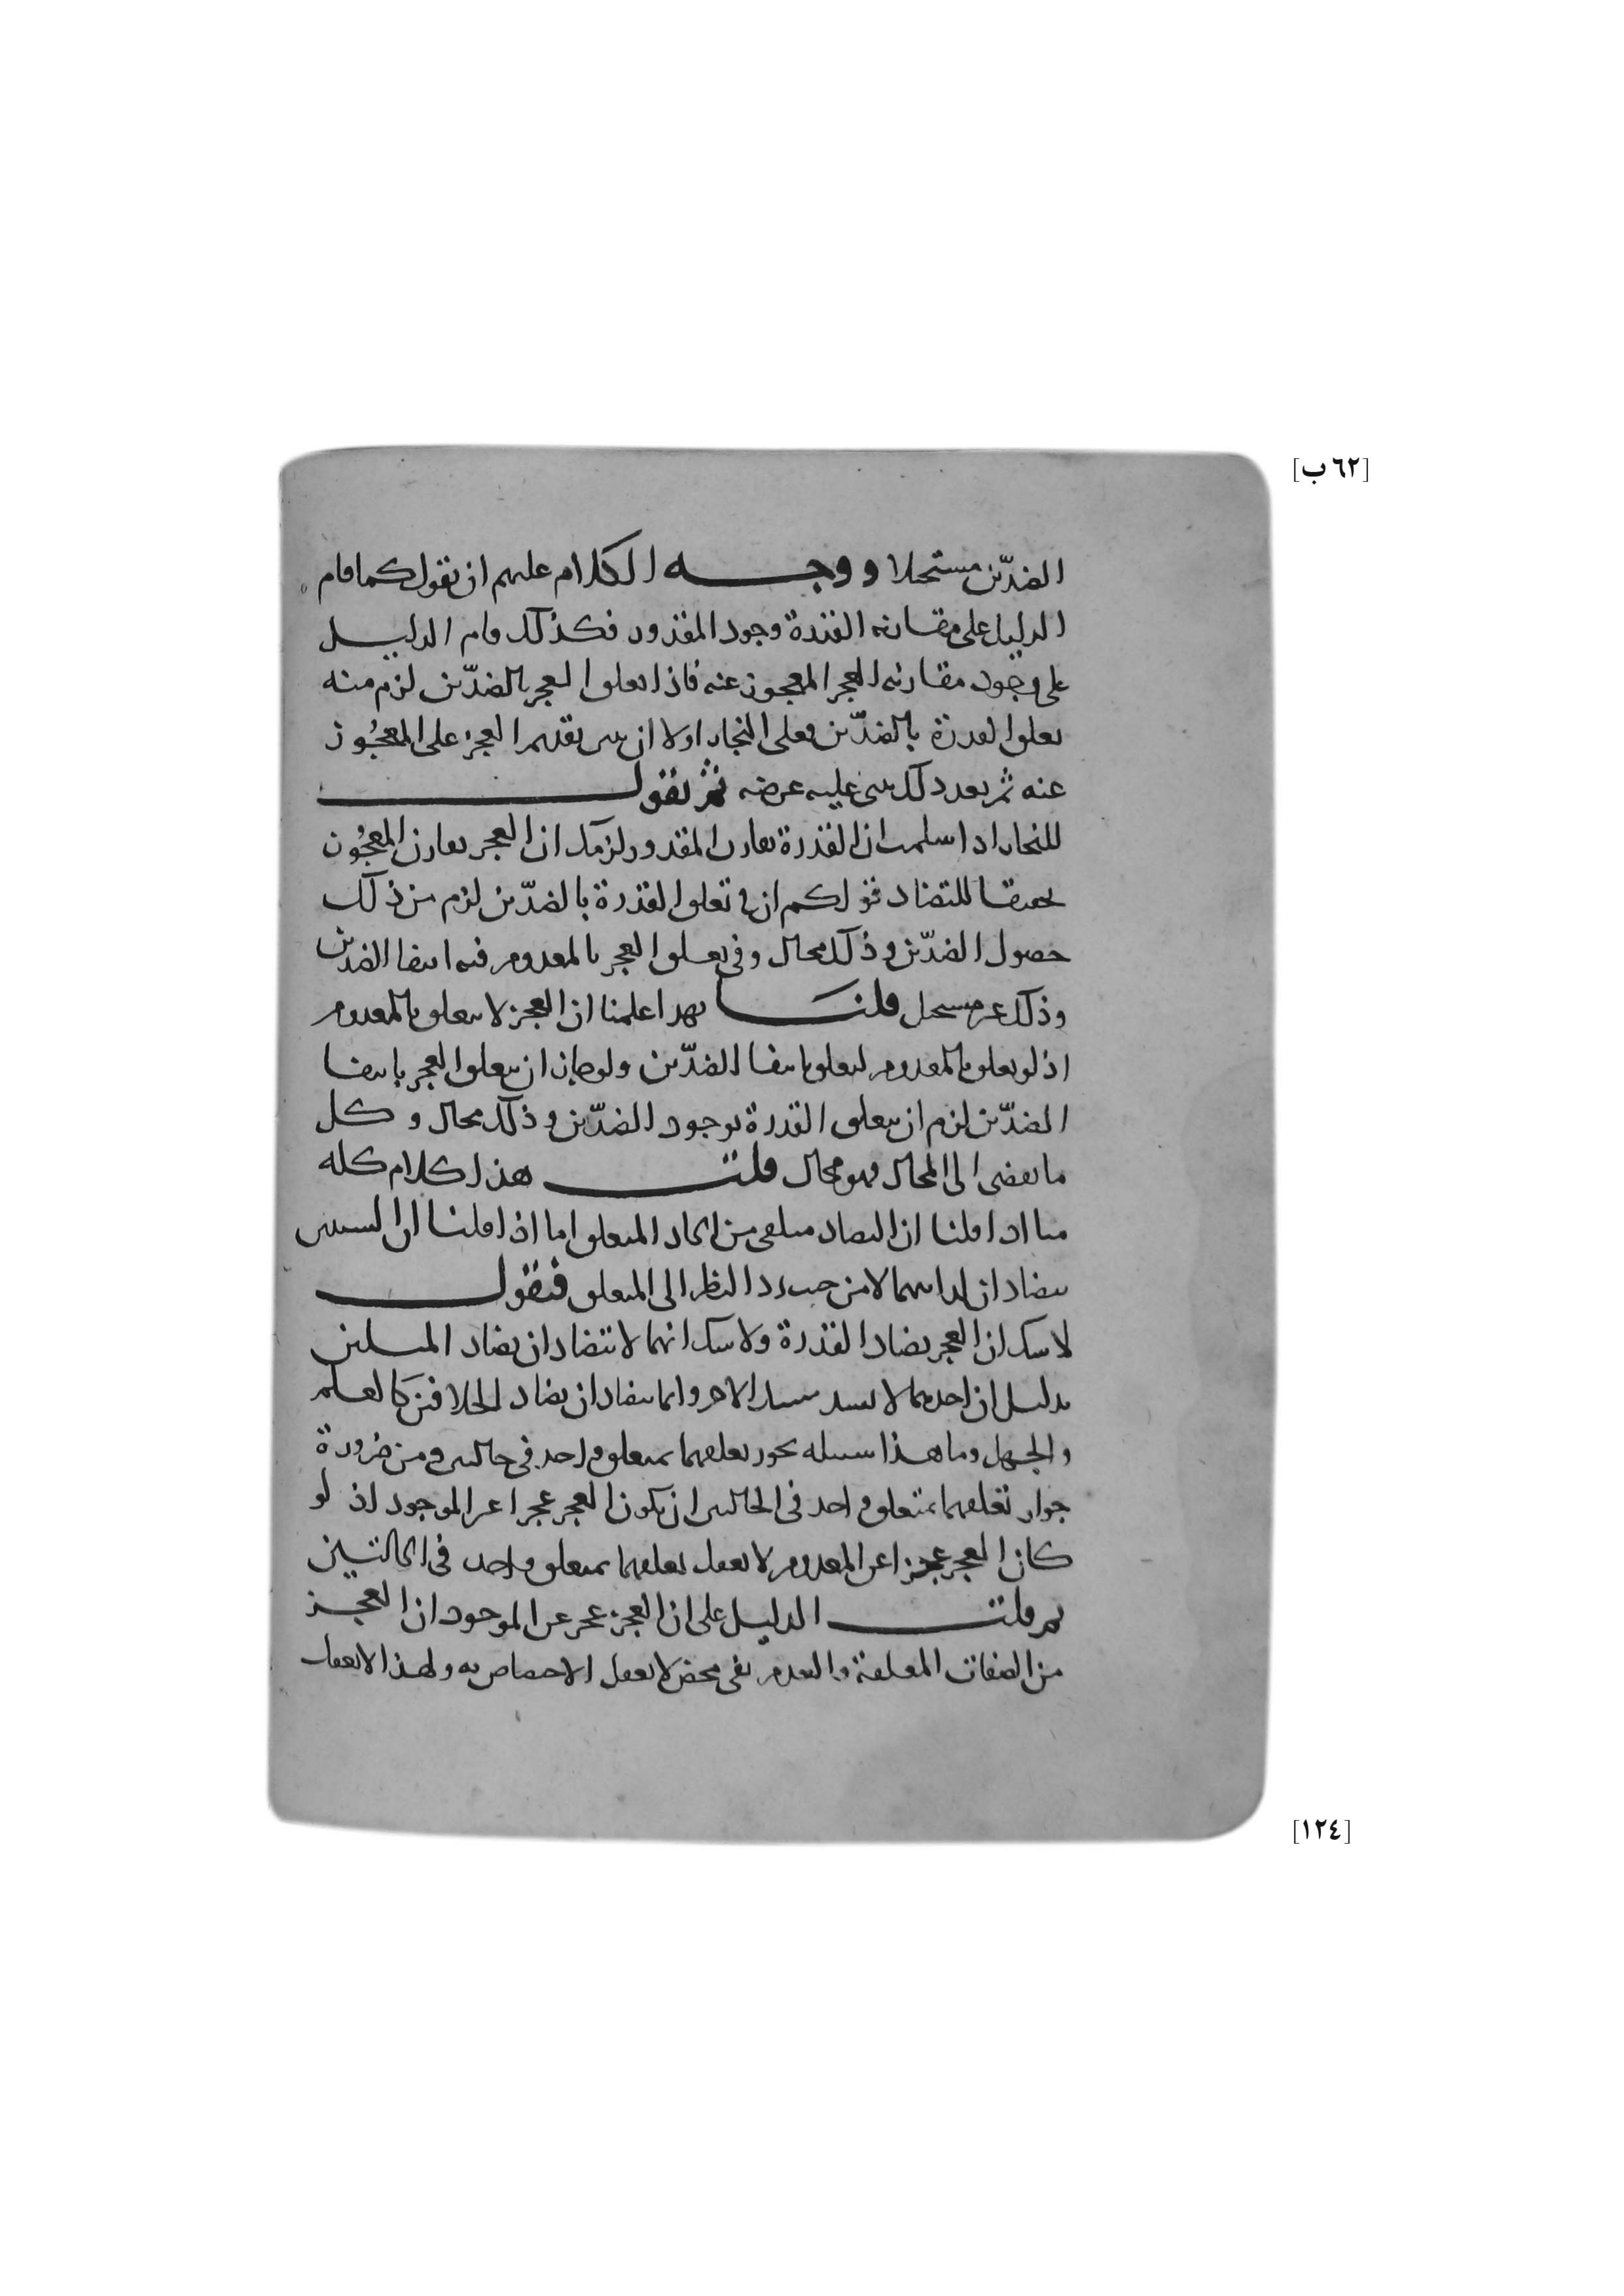 [٦٢ ب]
الضدّين مستحيلا ووجه الكلام عليهم ان نقول كما قام
الدليل على مقارنة القدرة وجود المقدور فكذلك قام الدليل
على وجود مقارنة العجز المعجوز عنه فاذا تعلق العجز بالضدّين لزم منه
تعلق القدرة بالضدّين فعلى النجار اولا ان يبنى تقديم العجز على المعجوز
عنه ثم بعد ذلك يبنى عليه غرضه ثم نقول
للنجار اذا سلمت ان القدرة تقارن المقدور لزمك ان العجز يقارن المعجوز
تحقيقا للتضاد قولكم ان في تعلق القدرة بالضدّين لزم من ذلك
حصول الضدّين وذلك محال وفي تعلق العجز بالمعدوم فيه انتفا الضدين
وذلك غير مستحيل قلنا بهذا علمنا ان العجز لا يتعلق بالمعدوم
اذ لو تعلق بالمعدوم لتعلق بانتفا الضدّين ولو جاز ان يتعلق العجز بانتفا
الضدّين لزم ان يتعلق القدرة بوجود الضدّين وذلك محال وكل
ما يفضى الى المحال فهو محال قلت هذا كلام كله
منا اذا قلنا ان التضاد متلقى من اتحاد المتعلق اما اذا قلنا ان الشيئين
يتضادان لذاتيهما لا من حيث رد النظر الى المتعلق فنقول
لا شك ان العجز يضاد القدرة ولا شك انهما لا يتضادان تضاد المثلين
بدليل ان احدهما لا يسد مسد الاخر وانما يتضادان تضاد الخلافين كالعلم
والجهل وما هذا سبيله يجوز تعلقهما بمتعلق واحد في حالتين ومن ضرورة
جواز تعلقهما بمتعلق واحد في الحالتين ان يكون العجز عجزا عن الموجود اذ لو
كان العجز عجزا عن المعدوم لا يعقل تعلقهما بمتعلق واحد في الحالتين
ثم قلت الدليل على ان العجز عجز عن الموجود ان العجز
من الصفات المتعلقة والعدم نفي محض لا يعقل الاختصاص به ولهذا لا يعقل
[١٢٤]